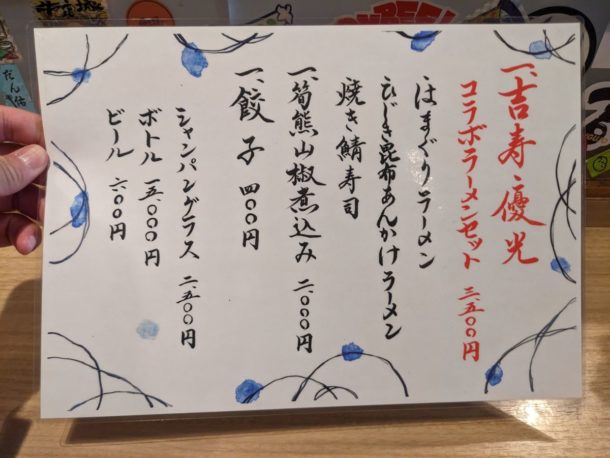 一、吉寿、優光
コラボラーメンセット 三、五〇〇円
はまぐりラーメン
ひじき昆布あんかけラーメン
焼き鯖寿司
一、筍熊山椒煮込み 二、〇〇〇円
一、餃子 四〇〇円
シャンパングラス 二、五〇〇円
ボトル 一五、〇〇〇円
ビール 六〇〇円